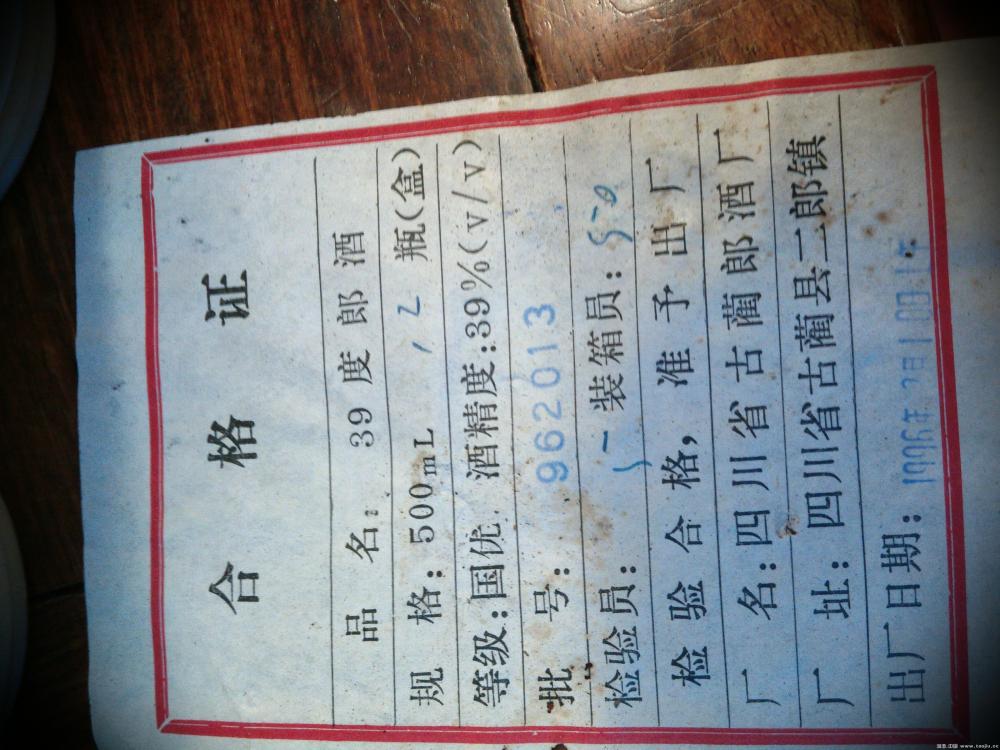 合格证
品 名: 39度郎酒
规 格: 500mL , 2 瓶(盒)
等级:国优 酒精度:39%(v/v)
批 号: 962013
检验员: 装箱员:
检验合格，准予出厂
厂 名:四川省古蔺郎酒厂
厂 址:四川省古蔺县二郎镇
出厂日期: 1996年2月1日